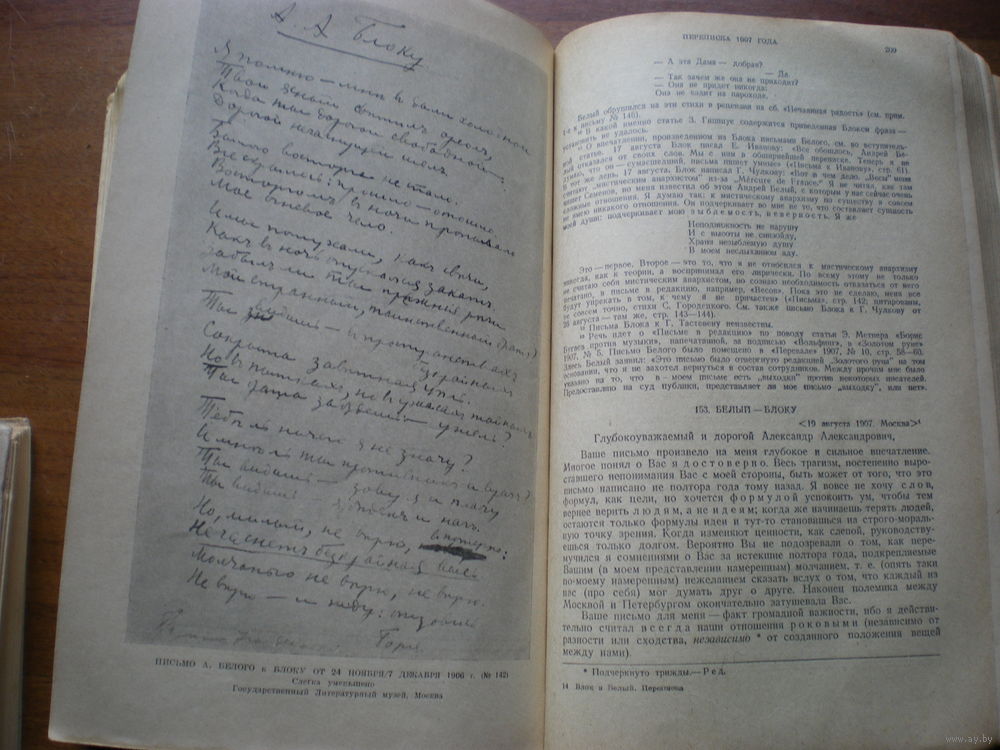 А. А Блоку
Я помню — мнѣ въ дали холодной
Твой ясный свѣтилъ ореолъ,
Когда ты дорогой свободной —
Дорогой незыблемой шелъ.
Былого восторга не стало.
Все скрылось: прошло — отошло.
Восторгомъ въ ночи пропылало
Мое огневое чело.
И мы потухали, какъ свѣчи,
Какъ въ ночь опускался закатъ.
Забылъ ли ты прежнія рѣчи,
Мой странный, таинственный братъ?
Ты видишь — въ пространствахъ
Сокрыта завѣтная цѣль.
Но въ пыткахъ, но въ ужасахъ тайныхъ
Ты брата забудешь — ужели?
Тебѣ ль ничего я не значу?
И мнѣ ль ты противникъ и врагъ?
Ты видишь — зову я и плачу
Ты видишь
Но, милый, не вѣрю, въ потерю:
Не гаснетъ
Молчанью не вѣрю, не вѣрю.
Не вѣрю — и жду:
Боря
ПИСЬМО А. БЕЛОГО к БЛОКУ ОТ 24 НОЯБРЯ/7 ДЕКАБРЯ 1906 г. (№ 142)
Слегка уменьшено
Государственный Литературный музей, Москва
ПЕРЕПИСКА 1907 ГОДА
209
— А эта Дама — добрая?
— Да.
— Так зачем же она не приходит?
— Она не придет никогда:
Она не ездит на пароходе.
Белый обрушился на эти стихи в рецензии на сб. «Нечаянная радость» (см. прим.
1-е к письму № 146).
В какой именно статье З. Гиппиус содержится приведенная Блоком фраза —
установить не удалось.
О впечатлении, произведенном на Блока письмами Белого, см. во вступитель-
ной статье. 17 августа Блок писал Е. Иванову: «Все обошлось, Андрей Бе-
лый отказался от своих слов. Мы с ним в обширнейшей переписке. Теперь я не
думаю, что он — сумасшедший, письма пишет умные» («Письма к Иванову», стр. 61).
В тот же день, 17 августа, Блок написал Г. Чулкову: «Вот в чем дело. „Весы“ меня
считают „мистическим анархистом“ из-за „Mercure de France“. Я не читал, как там
пишет Семенов, но меня известил об этом Андрей Белый, с которым у нас сейчас очень
сложные отношения. Я думаю так: к мистическому анархизму по существу я совсем
не имею никакого отношения. Он подчеркивает во мне не то, что составляет сущность
моей души: подчеркивает мою зыблемость, неверность. Я же
Неподвижность не нарушу
И с высоты не снизойду,
Храня незыблемую душу
В моем неслыханном аду.
Это — первое. Второе — это то, что я не относился к мистическому анархизму
никогда, как к теории, а воспринимал его лирически. По всему этому не только
не считаю себя мистическим анархистом, но сознаю необходимость отказаться от него
печатно, в письме в редакцию, например, «Весов». Пока это не сделано, меня все
будут упрекать в том, к чему я не причастен» («Письма», стр. 142; цитировано,
не совсем точно, стихи С. Городецкого. См. также письмо Блока к Г. Чулкову от
26 августа — там же, стр. 143—144).
Письма Блока к Г. Тастевену неизвестны.
Речь идет о «Письме в редакцию» по поводу статьи Э. Метнера «Борис
Бугаев против музыки», напечатанной, за подписью «Вольфинг», в «Золотом руне»
1907, № 5. Письмо Белого было помещено в «Перевале» 1907, № 10, стр. 58—60.
Здесь Белый заявил: «Это письмо было отвергнуто редакцией „Золотого руна“ на том
основании, что я не захотел вернуться в состав сотрудников. Между прочим мне было
указано на то, что в моем письме есть „выходки“ против некоторых писателей.
Предоставляю на суд публики, представляет ли мое письмо „выходку“, или нет».
153. БЕЛЫЙ — БЛОКУ
<19 августа 1907. Москва>¹
Глубокоуважаемый и дорогой Александр Александрович,
Ваше письмо произвело на меня глубокое и сильное впечатление.
Многое понял о Вас я достоверно. Весь трагизм, постепенно выро-
ставшего непонимания Вас с моей стороны, быть может от того, что это
письмо написано не полтора года тому назад. Я вовсе не хочу слов,
формул, как цели, но хочется формулой успокоить ум, чтобы тем
вернее верить людям, а не идеям; когда же начинаешь терять людей,
остаются только формулы идеи и тут-то становишься на строго-мораль-
ную точку зрения. Когда изменяют ценности, как слепой, руководству-
ешься только долгом. Вероятно Вы не подозревали о том, как пере-
мучился я сомнениями о Вас за истекшие полтора года, подкрепляемые
Вашим (в моем представлении намеренным) молчанием, т. е. (опять таки
по-моему намеренным) нежеланием сказать вслух о том, что каждый из
нас (про себя) мог думать друг о друге. Наконец полемика между
Москвой и Петербургом окончательно затушевала Вас.
Ваше письмо для меня — факт громадной важности, ибо я действи-
тельно считал всегда наши отношения роковыми (независимо от
разности или сходства, независимо * от созданного положения вещей
между нами).
* Подчеркнуто трижды.— Ред.
14 Блок и Белый. Переписка
www.ay.by